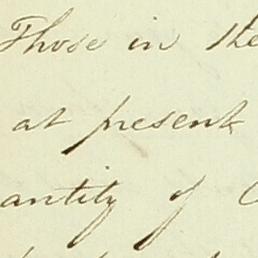 Those in the
at present
antity of